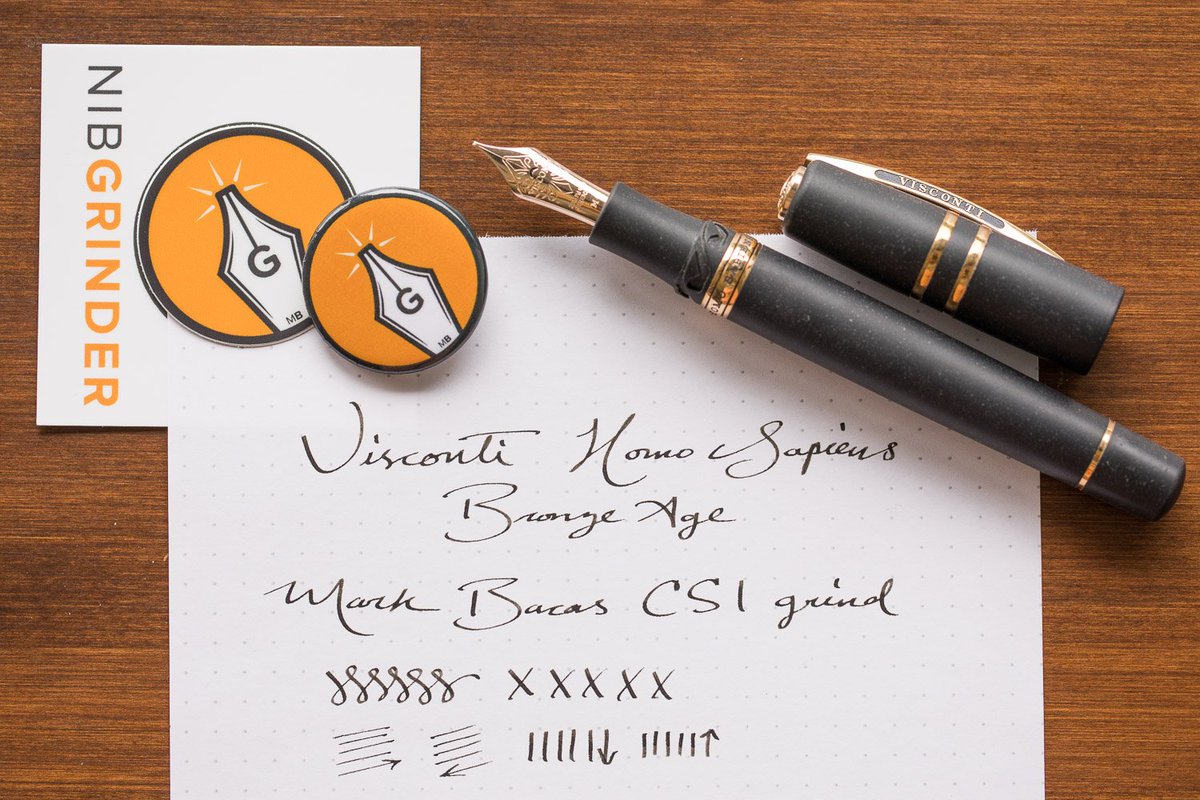 NIBGRINDER
G
MB
G
MB
VISCONTI
M
Visconti Homo Sapiens
Bronze Age
Mark Bacas CSI grind
X X X X X